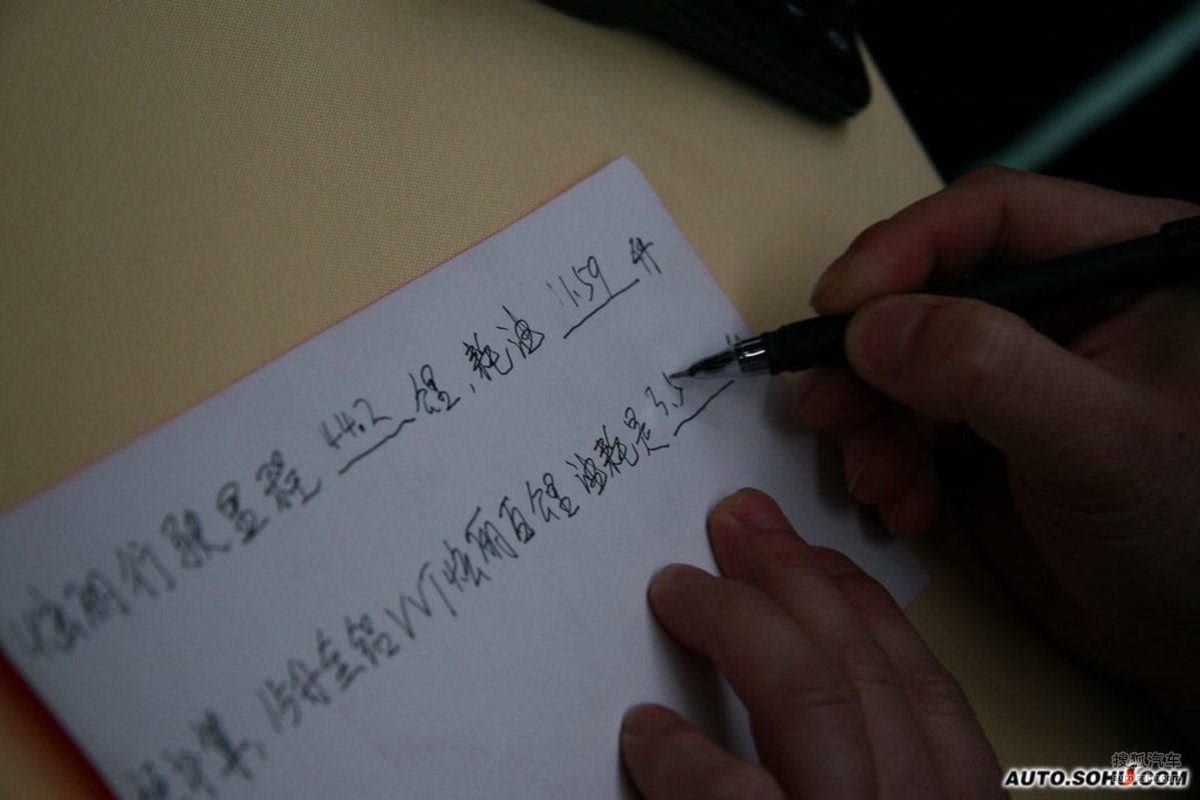 炫丽行驶里程 14.2 公里,耗油 11.59 升
算,15分 全铝VVT炫丽百公里油耗是3.5
搜狐汽车
AUTO.SOHU.COM